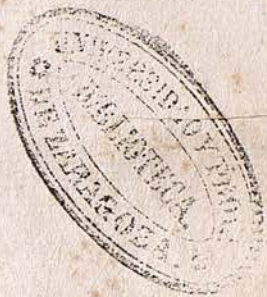 UNIVERSIDAD Y PROV.
BIBLIOTECA
DE ZARAGOZA